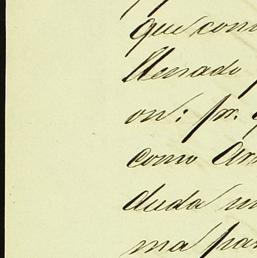 que com
llenado
on: pr.
como Ar
duda m
ma par